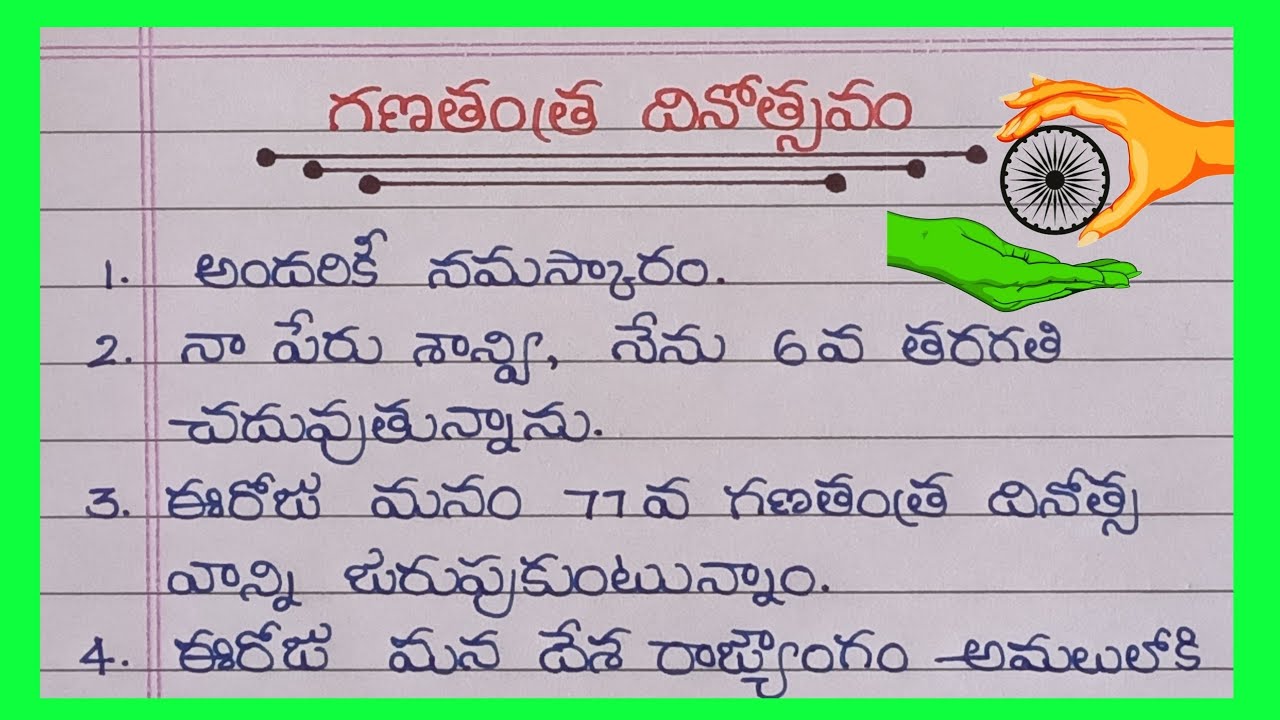 గణతంత్ర దినోత్సవం
1. అందరికీ నమస్కారం.
2. నా పేరు శాన్వి, నేను 6వ తరగతి
చదువుతున్నాను.
3. ఈరోజు మనం 77వ గణతంత్ర దినోత్స
వాన్ని జరుపుకుంటున్నాం.
4. ఈరోజు మన దేశ రాజ్యాంగం అమలులోకి